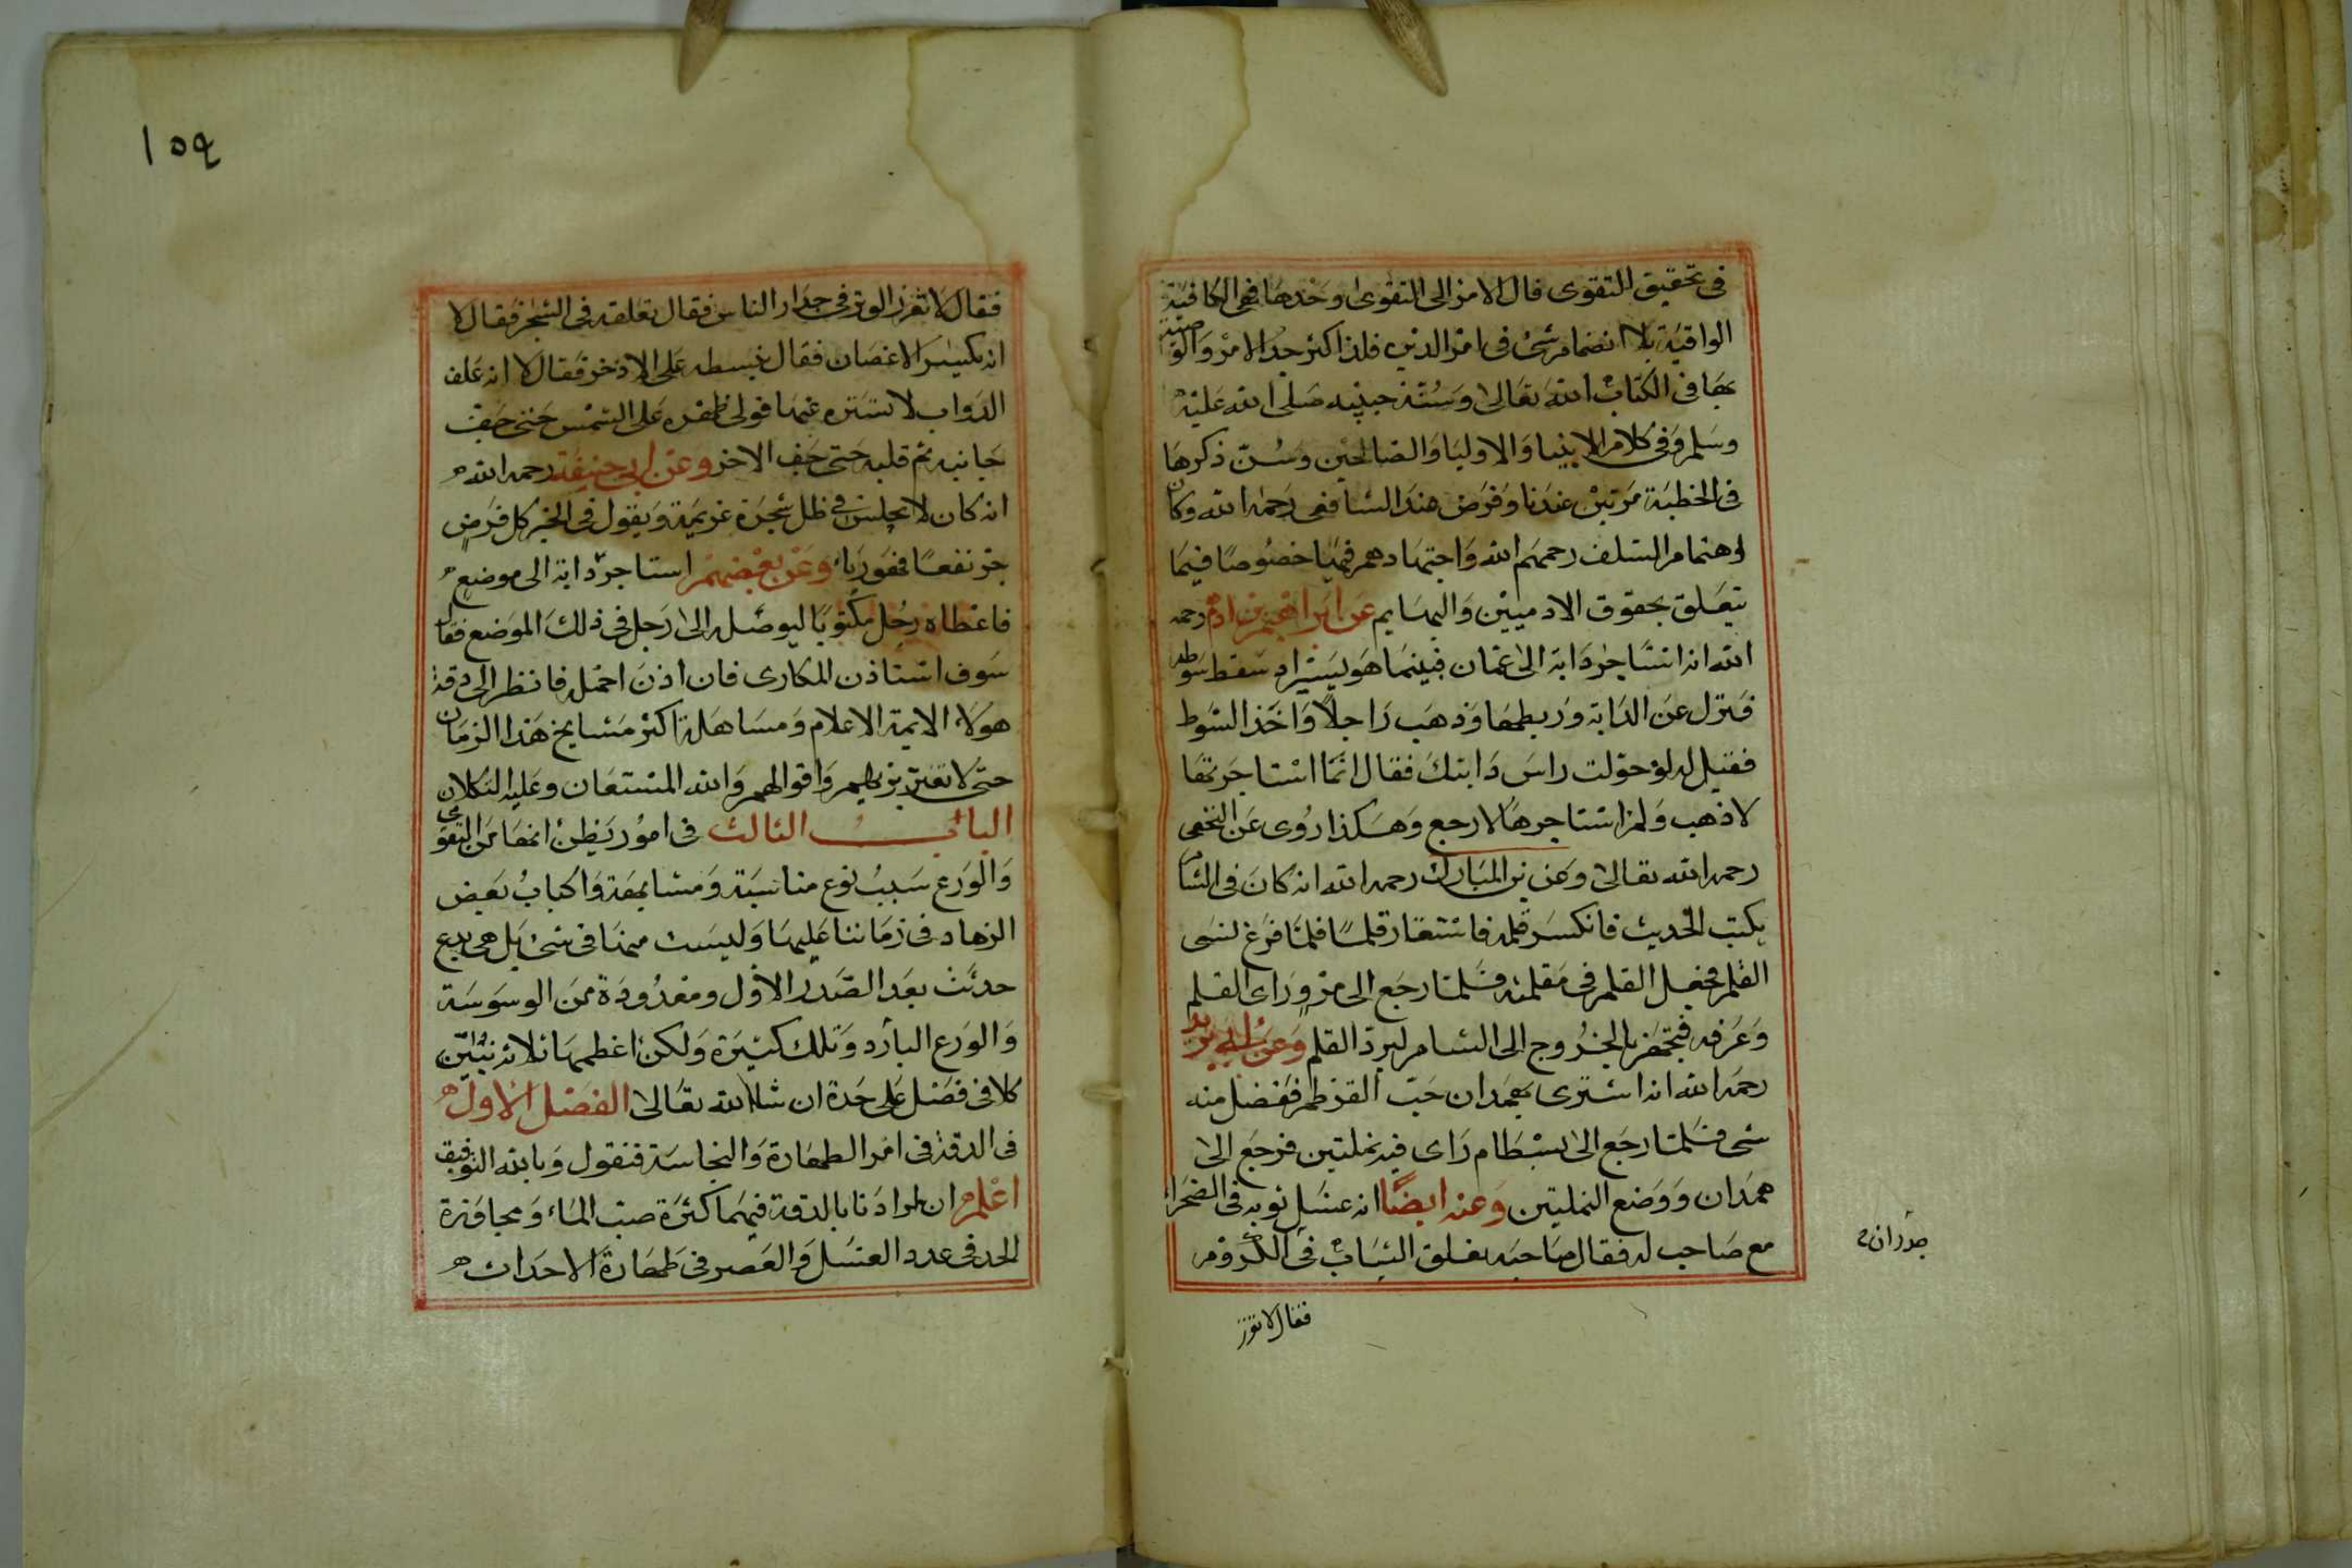 في تحقيق للتقوى قال الامر الى التقوى وحدها فهي الكافية
الواقية بلا انضمام شئ في امر الدين فلذا كثر جدا الامر والوصية
بها في الكتاب الله تعالى وسنة حبيبه صلى الله عليه
وسلم وفي كلام الانبيا والاوليا والصالحين وسن ذكرها
في الخطبة مرتين عندنا وفرض عند الشافعي رحمه الله وكان
اهتمام السلف رحمهم الله واجتهادهم فيها خصوصا فيما
يتعلق بحقوق الادميين والبهايم عن ابراهيم بن ادهم رحمه
الله انه استاجر دابة الى عمان فبينما هو يسير اذ سقط سوطه
فنزل عن الدابة وربطها وذهب راجلا واخذ السوط
فقيل له لو حولت راس دابتك فقال انما استاجرتها
لاذهب ولم استاجرها لارجع وهكذا روى عن النخعي
رحمه الله تعالى وعن بن المبارك رحمه الله انه كان في الشام
يكتب الحديث فانكسر قلمه فاستعار قلما فلما فرغ نسى
القلم فجعل القلم في مقلمته فلما رجع الى مرو راى القلم
وعرفه فتجهز بالخروج الى الشام ليرد القلم وعن ابي يزيد
رحمه الله انه اشترى بهمدان حب القرطم ففضل منه
شى فلما رجع الى بسطام راى فيه نملتين فرجع الى
همدان ووضع النملتين وعنه ايضا انه غسل ثوبه في الصحرا
مع صاحب له فقال صاحبه نعلق الثياب في الكروم
جدران
فقال لا تغرز
١٥٩
فقال لا تغرز الوتد في جدار الناس فقال نعلقه في الشجر فقال لا
انه يكسر الاغصان فقال نبسطه على الاذخر فقال لا انه علف
الدواب لا نستره عنها فولى ظهره على الشمس حتى جف
جانبه ثم قلبه حتى جف الاخر وعن ابي حنيفة رحمه الله
انه كان لا يجلس في ظل شجرة غريمه ويقول في الخبر كل قرض
جر نفعا فهو ربا وعن بعضهم استاجر دابة الى موضع
فاعطاه رجل مكتوبا ليوصله الى رجل في ذلك الموضع فقال
سوف استاذن المكارى فان اذن احمله فانظر الى دقة
هولاء الايمة الاعلام ومساهلة اكثر مشايخ هذا الزمان
حتى لا تغتر بزيهم واقوالهم والله المستعان وعليه التكلان
الباب الثالث في امور يظن انها من التقوى
والورع سبب نوع مناسبة ومشابهة واكباب بعض
الزهاد في زماننا عليها وليست منها في شئ بل هي بدع
حدثت بعد الصدر الاول ومعدودة من الوسوسة
والورع البارد وتلك كثيرة ولكن اعظمها ثلاثة نبين
كلا في فصل على حدة ان شاالله تعالى الفصل الاول
في الدقة في امر الطهارة والنجاسة فنقول وبالله التوفيق
اعلم ان مرادنا بالدقة فيهما كثرة صب الماء ومجاوزة
الحد في عدد الغسل والعصر في طهارة الاحداث